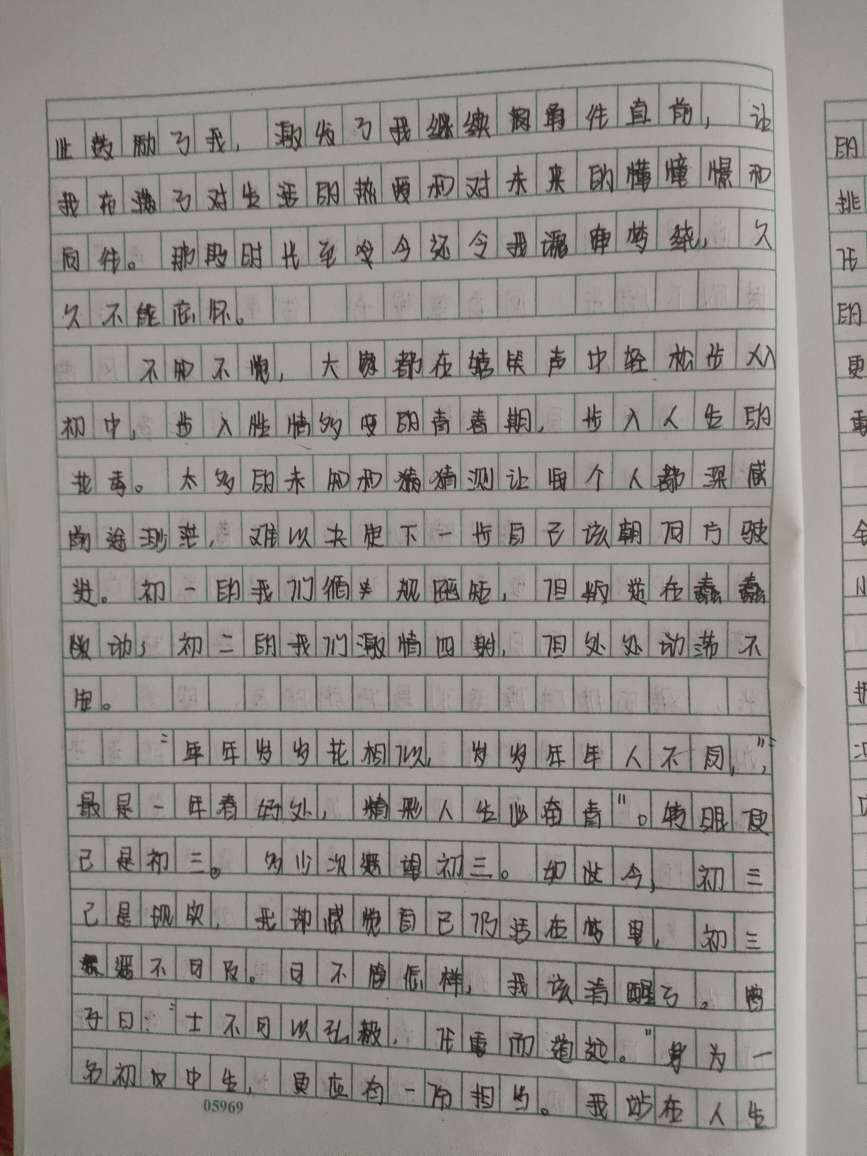 此鼓励了我，激发了我继续勇往直前，让
我充满了对生活的热爱和对未来的憧憬和
向往。那段时光至今还令我魂牵梦绕，久
久不能忘怀。
不知不觉，大家都在嬉笑声中轻松步入
初中，步入性情多变的青春期，步入人生的
花季。太多的未知和猜测让每个人都深感
前途渺茫，难以决定下一步自己该朝何方驶
进。初一的我们循规蹈矩，但叛逆在蠢蠢
欲动；初二的我们激情四射，但处处动荡不
定。
“年年岁岁花相似，岁岁年年人不同，”，
最是一年春好处，精彩人生必奋青”。转眼便
已是初三。多少次遥望初三。如此今，初三
已是现实，我却感觉自己仍活在梦里，初三
遥不可及。可不管怎样，我该清醒了。曾
子曰：“士不可以弘毅，任重而道远。”身为一
名初中生，更应有一份担当。我站在人生
05969
的
挑
任
的
更
重